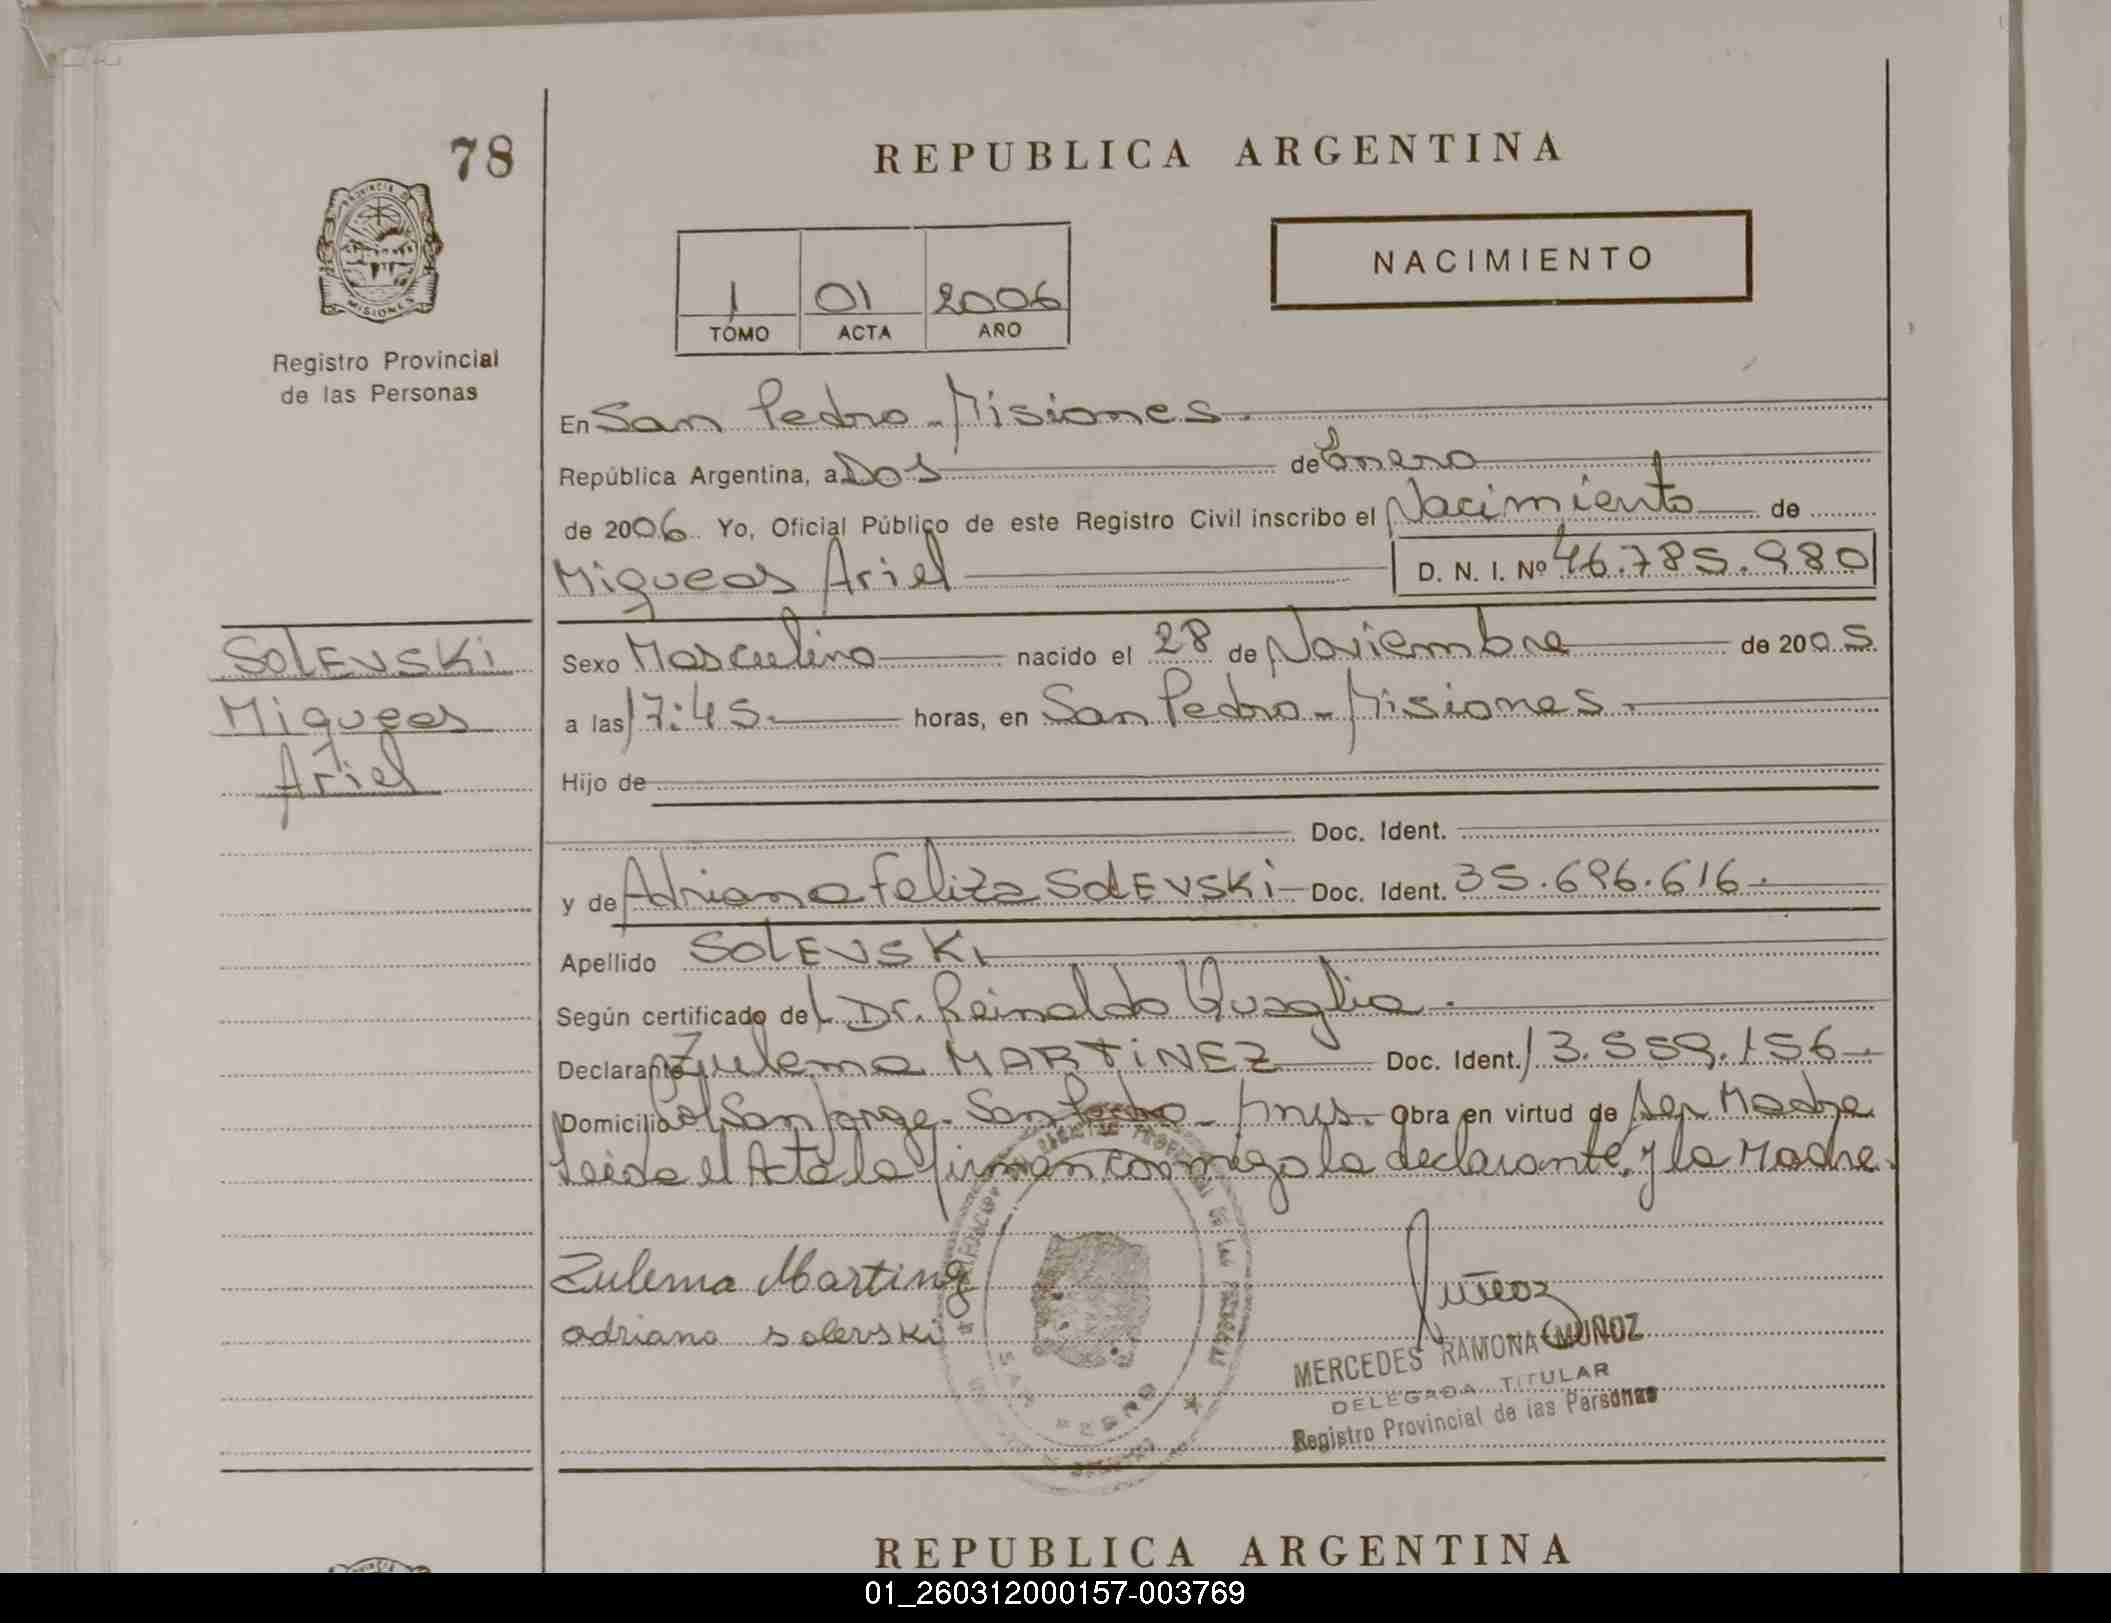 78
REPUBLICA ARGENTINA
PROVINCIA DE
MISIONES
Registro Provincial
de las Personas
NACIMIENTO
1 01 2006
TOMO ACTA AÑO
En San Pedro - Misiones
República Argentina, a Dos de Enero
de 2006 Yo, Oficial Público de este Registro Civil inscribo el Nacimiento de
Miqueas Ariel D. N. I. Nº 46.785.980
SOLEVSKi
Miqueas
Ariel
Sexo Masculino nacido el 28 de Noviembre de 2005
a las 17:45 horas, en San Pedro - Misiones
Hijo de
Doc. Ident.
y de Adriana Feliza SOLEVSKi Doc. Ident. 35.696.616
Apellido SOLEVSKI
Según certificado del Dr. Reinaldo Quaglia
Declarante Zulema MARTiNEZ Doc. Ident. 13.559.156
Domicilio Col San Jorge - San Pedro - Mnes. Obra en virtud de ser Madre
Leida el Acta la firman conmigo la declarante y la Madre.
Zulema Martinez
adriana solevski
Muñoz
MERCEDES RAMONA MUÑOZ
DELEGADA TITULAR
Registro Provincial de las Personas
SAN PEDRO
REPUBLICA ARGENTINA
01_260312000157-003769